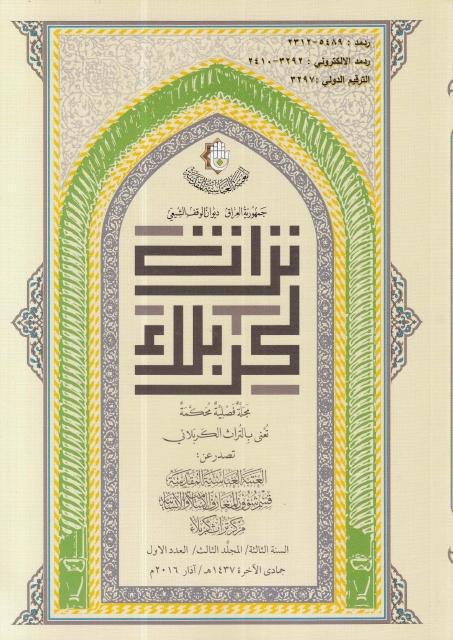 ردمد : ٢٣١٢-٥٤٨٩
ردمد الالكتروني : ٢٤١٠-٣٢٩٢
الترقيم الدولي :٣٢٩٧
العتبة العباسية المقدسة
جمهورية العراق ديوان الوقف الشيعي
تراث
كربلاء
مجلة فصلية محكمة
تعنى بالتراث الكربلائي
تصدر عن:
العتبة العباسية المقدسة
قسم شؤون المعارف الإسلامية والإنسانية
مركز تراث كربلاء
السنة الثالثة/ المجلّد الثالث/ العدد الاول
جمادى الآخرة ١٤٣٧هـ/ آذار ٢٠١٦م